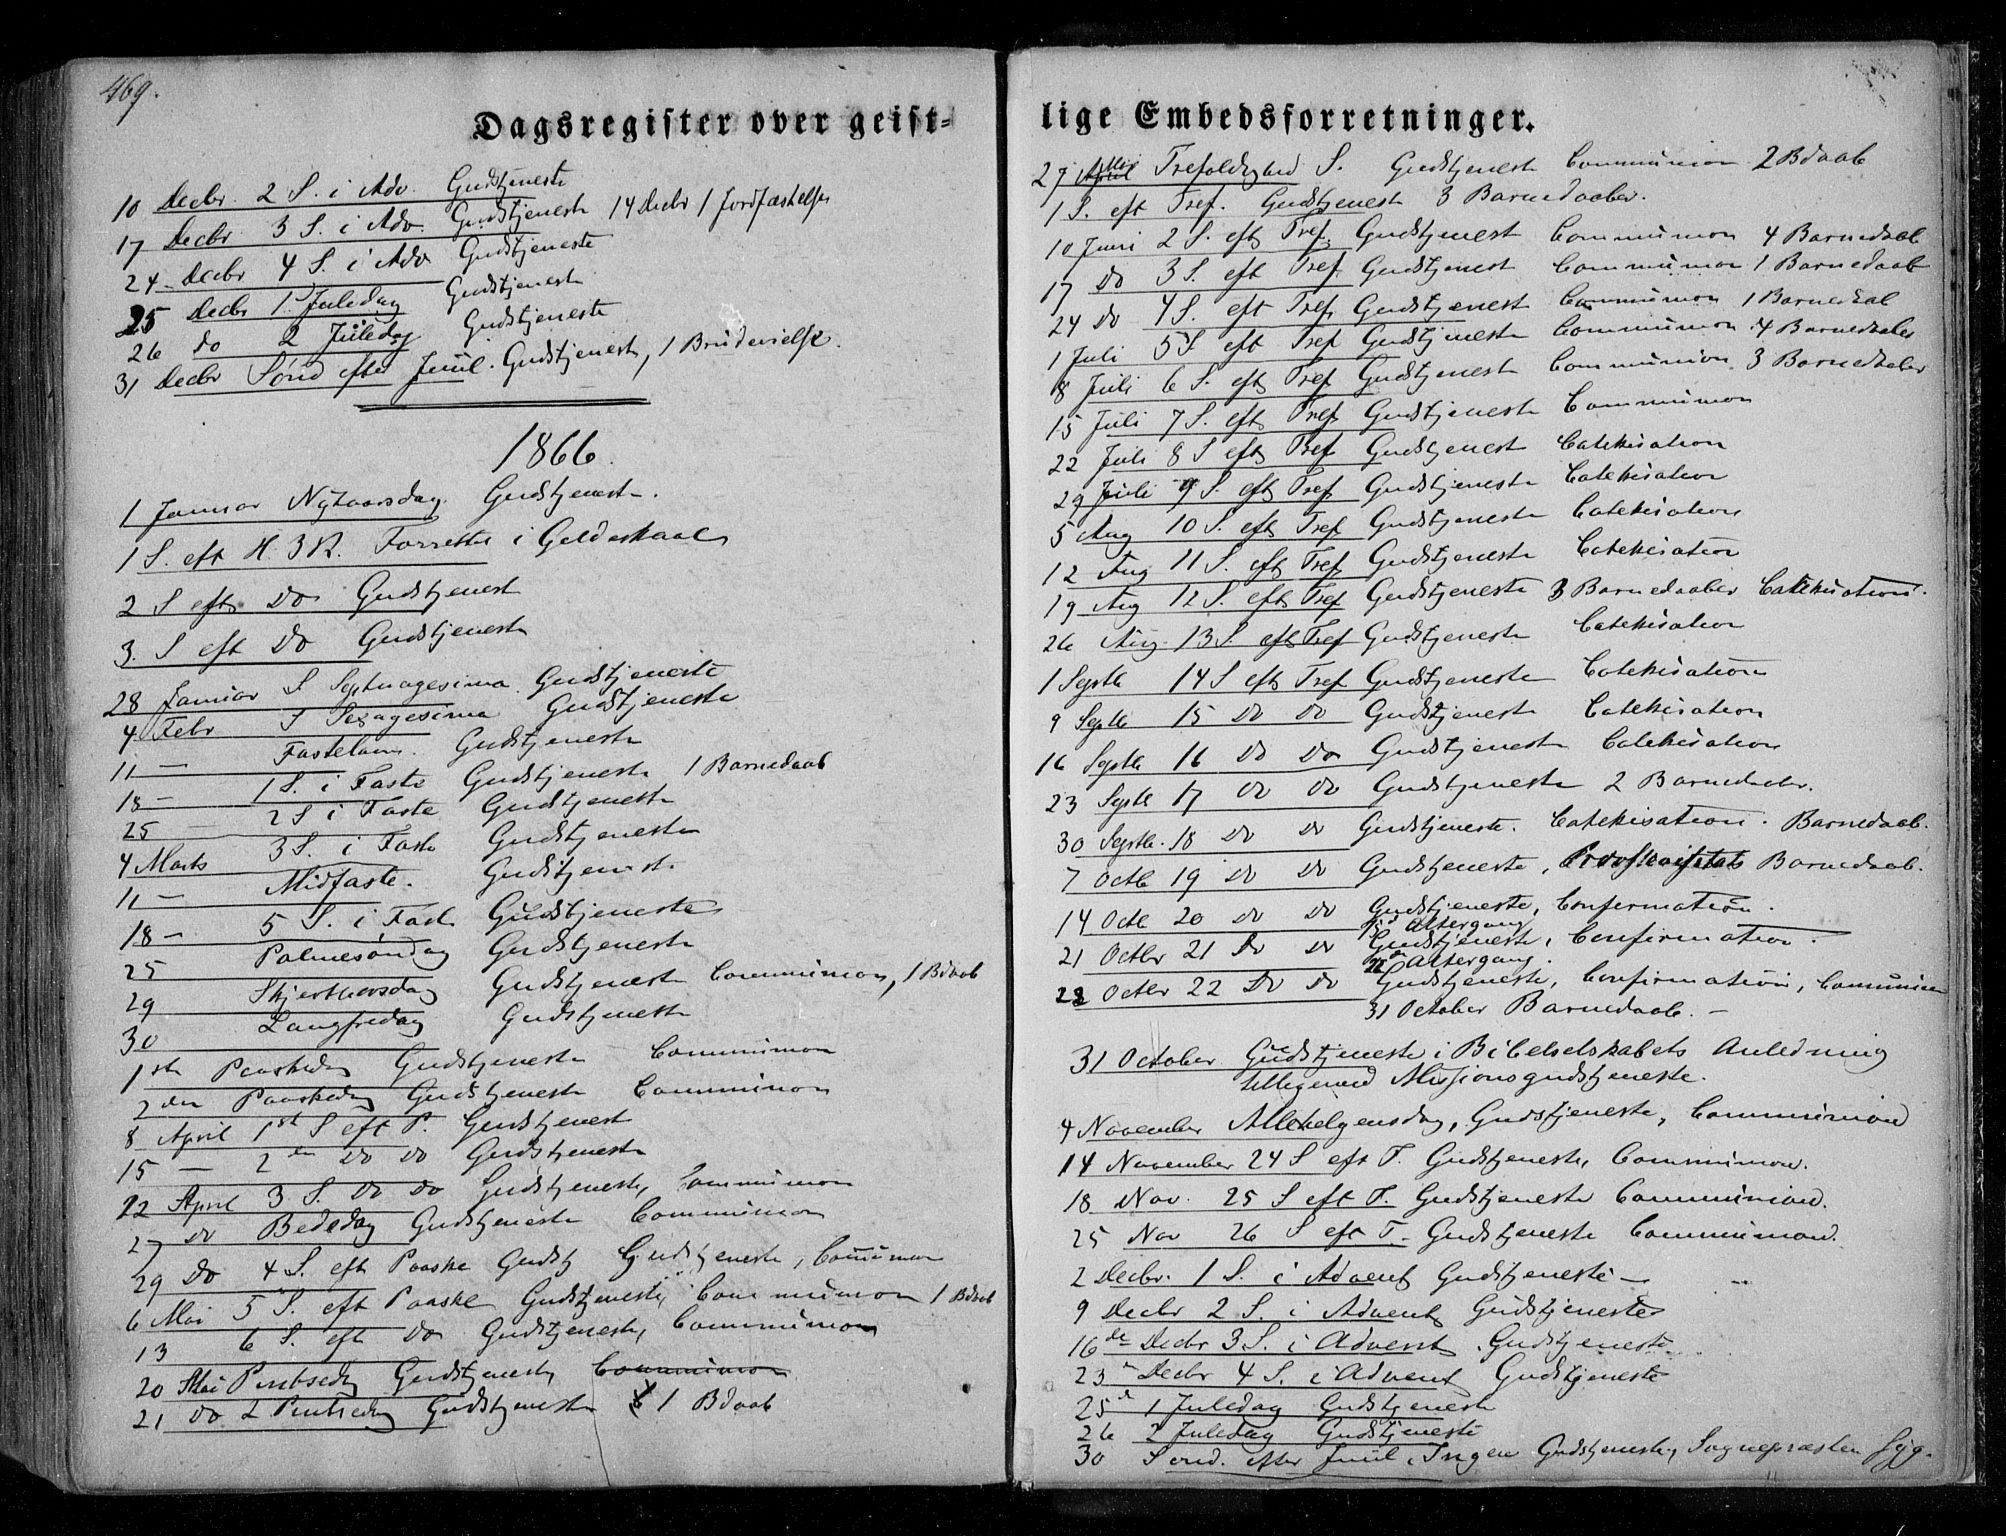 469.
Dagsregister over geist-
10 Decbr. 2 S. i Adv. Gudstjeneste
17 Decbr 3 S. i Adv. Gudstjeneste 14 Decbr 1 Jordfæstelse
24 Decbr 4 S. i Adv Gudstjeneste
25 Decbr 1. Juledag Gudstjeneste
26 do 2 Juledag Gudstjeneste
31 Decbr Sönd efter Juul. Gudstjeneste, 1 Brudevielse.
1866.
1 Januar Nytaarsdag. Gudstjeneste.
1 S. eft H. 3 K. Forrettes i Gildeskaal
2 S eft Do Gudstjenest
3. S eft Do Gudstjeneste
28 Januar S Septuagesima Gudstjeneste
4 Febr S Sexagesima Gudstjeneste
11 — Fastelavn. Gudstjeneste
18 — 1 S. i Faste Gudstjeneste 1 Barnedaab
25 — 2 S i Faste Gudstjeneste
4 Marts 3 S. i Faste Gudstjeneste
11 — Midfaste. Gudstjeneste
18 — 5 S. i Faste Gudstjeneste
25 Palmesøndag Gudstjeneste
29 Skjærthorsdag Gudstjeneste Communion, 1 Bdaab
30 Langfredag Gudstjeneste
1ste Paaskedag Gudstjeneste Communion
2den Paaskedag Gudstjeneste Communion
8 April 1st S eft P. Gudstjenest
15 — 2den do do Gudstjeneste
22 April 3 S. do do Gudstjeneste, Communion
27 do Bededag Gudstjeneste Communion
29 Do 4 S. eft Paaske Gudstj Gudstjeneste, Communion
6 Mai 5 S. eft Paaske Gudstjeneste, Communion 1 Bdaab
13 6 S. eft Do Gudstjeneste, Communion
20 Mai Pintsedg Gudstjeneste, Communion
21 do 2 Pintsedag Gudstjeneste 1 Bdaab
lige Embedsforretninger.
27 Mai Trefoldighed S. Gudstjeneste Communion 2 Bdaab
1 S. eft Tref. Gudstjeneste 3 Barnedaaber.
10 Juni 2 S. eft Tref. Gudstjenest Communion 4 Barnedaab
17 Do 3 S. eft Tref Gudstjenest Communion 1 Barnedaab
24 Do 4 S. eft Tref. Gudstjenest Communion 1 Barnedaab
1 Juli 5 S eft Tref Gudstjeneste Communion 4 Barnedaaber
8 Juli 6 S. eft Tref Gudstjeneste Communion 3 Barnedaaber
15 Juli 7 S. eft Tref Gudstjeneste Communion
22 Juli 8 S eft Tref Gudstjenest Catekisation
29 Juli 9 S. eft Tref Gudstjeneste Catekisation
5 Aug 10 S. eft Tref Gudstjeneste Catekisation
12 Aug 11 S. eft Tref Gudstjeneste Catekisation
19 Aug 12 S. eft Tref Gudstjeneste 3 Barnedaaber Catekisation.
26 Aug 13 S. eft Tref Gudstjeneste Catekisation
1 Septb 14 S eft Tref Gudstjeneste Catekisation
9 Septb 15 do do Gudstjeneste Catekisation
16 Septb 16 do do Gudstjeneste Catekisation
23 Septb 17 do do Gudstjeneste 2 Barnedaaber.
30 Septb. 18 do do Gudstjeneste. Catekisation. Barnedaab.
7 Octb 19 do do Gudstjeneste, Barnedaab.
14 Octb 20 do do Gudstjeneste, Confirmation.
Altergang
21 Octbr 21 do do Gudstjeneste, Confirmation.
Altergang.
28 Octbr 22 do do Gudstjeneste, Confirmation, Comunion
31 October Barnedaab. —
31 October Gudstjeneste i Bibelselskabets Anledning
tilligemed Missionsgudstjeneste.
4 November Allehelgensdag, Gudstjeneste, Communion
14 November 24 S eft T. Gudstjeneste, Communion.
18 Nov. 25 S eft T. Gudstjeneste Communion.
25 Nov 26 S eft T. Gudstjeneste Communion.
2 Decbr. 1 S. i Advent Gudstjeneste —
9 Decbr 2 S. i Advent Gudstjeneste
16de Decbr 3 S. i Advent Gudstjeneste
23 Decbr 4 S. i Advent Gudstjeneste
25 1 Juledag Gudstjeneste
26 2 Juledag Gudstjeneste
30 Sønd. efter Juul, Ingen Gudstjeneste, Sognepræsten syg.